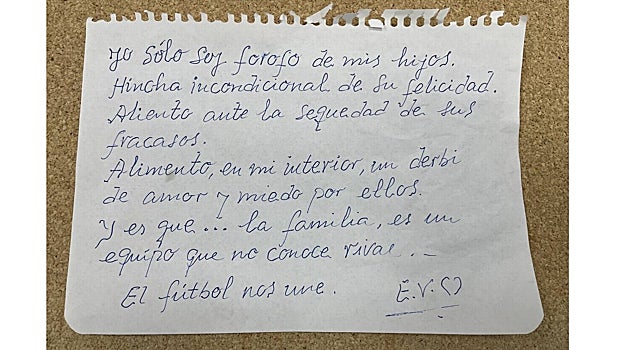 Yo sólo soy forofo de mis hijos.
Hincha incondicional de su felicidad.
Aliento ante la sequedad de sus
fracasos.
Alimento, en mi interior, un derbi
de amor y miedo por ellos.
Y es que... la familia, es un
equipo que no conoce rival. _
El fútbol nos une. E.V.♡